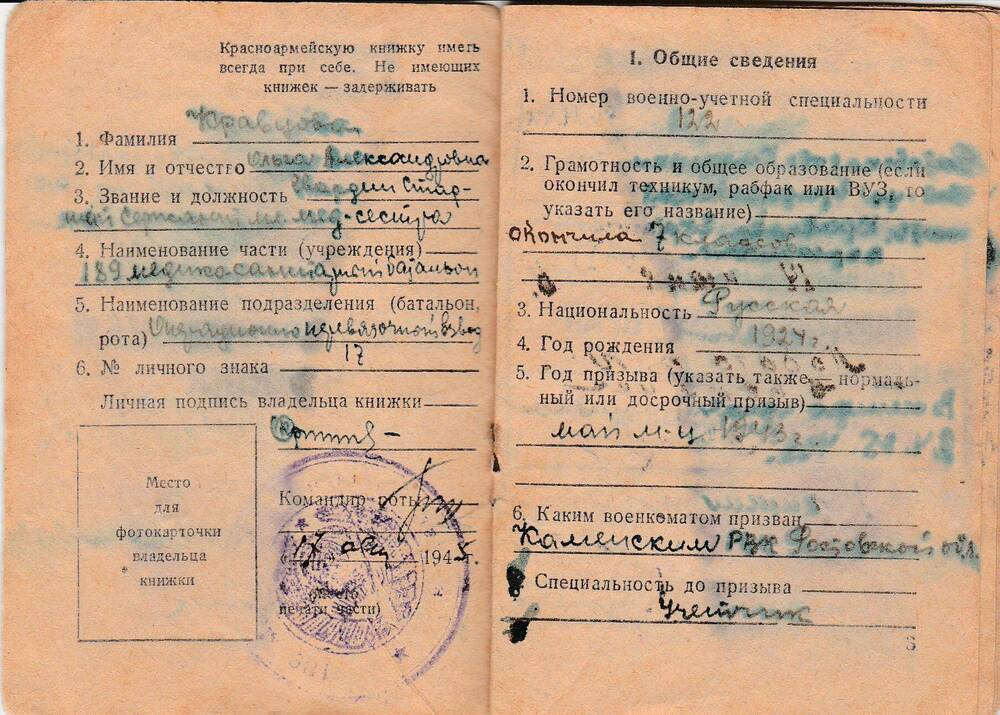 Красноармейскую книжку иметь
всегда при себе. Не имеющих
книжек — задерживать
1. Фамилия Кравцова
2. Имя и отчество Ольга Александровна
3. Звание и должность Гвардии Стар-
ший Сержант мл. мед-сестра
4. Наименование части (учреждения)
189 медикосанитарный батальон
5. Наименование подразделения (батальон,
рота) Операционно перевязочный взвод
6. № личного знака 17
Личная подпись владельца книжки
Место
для
фотокарточки
владельца
книжки
Командир роты
„17“ авг 1945г.
(место
печати части)
I. Общие сведения
1. Номер военно-учетной специальности
122
2. Грамотность и общее образование (если
окончил техникум, рабфак или ВУЗ, то
указать его название)
окончила 7 классов
3. Национальность Русская
4. Год рождения 1924г.
5. Год призыва (указать также нормаль-
ный или досрочный призыв)
май м-ц 1943г.
6. Каким военкоматом призван
Каменским РВК Ростовской обл.
Специальность до призыва
Учетчик